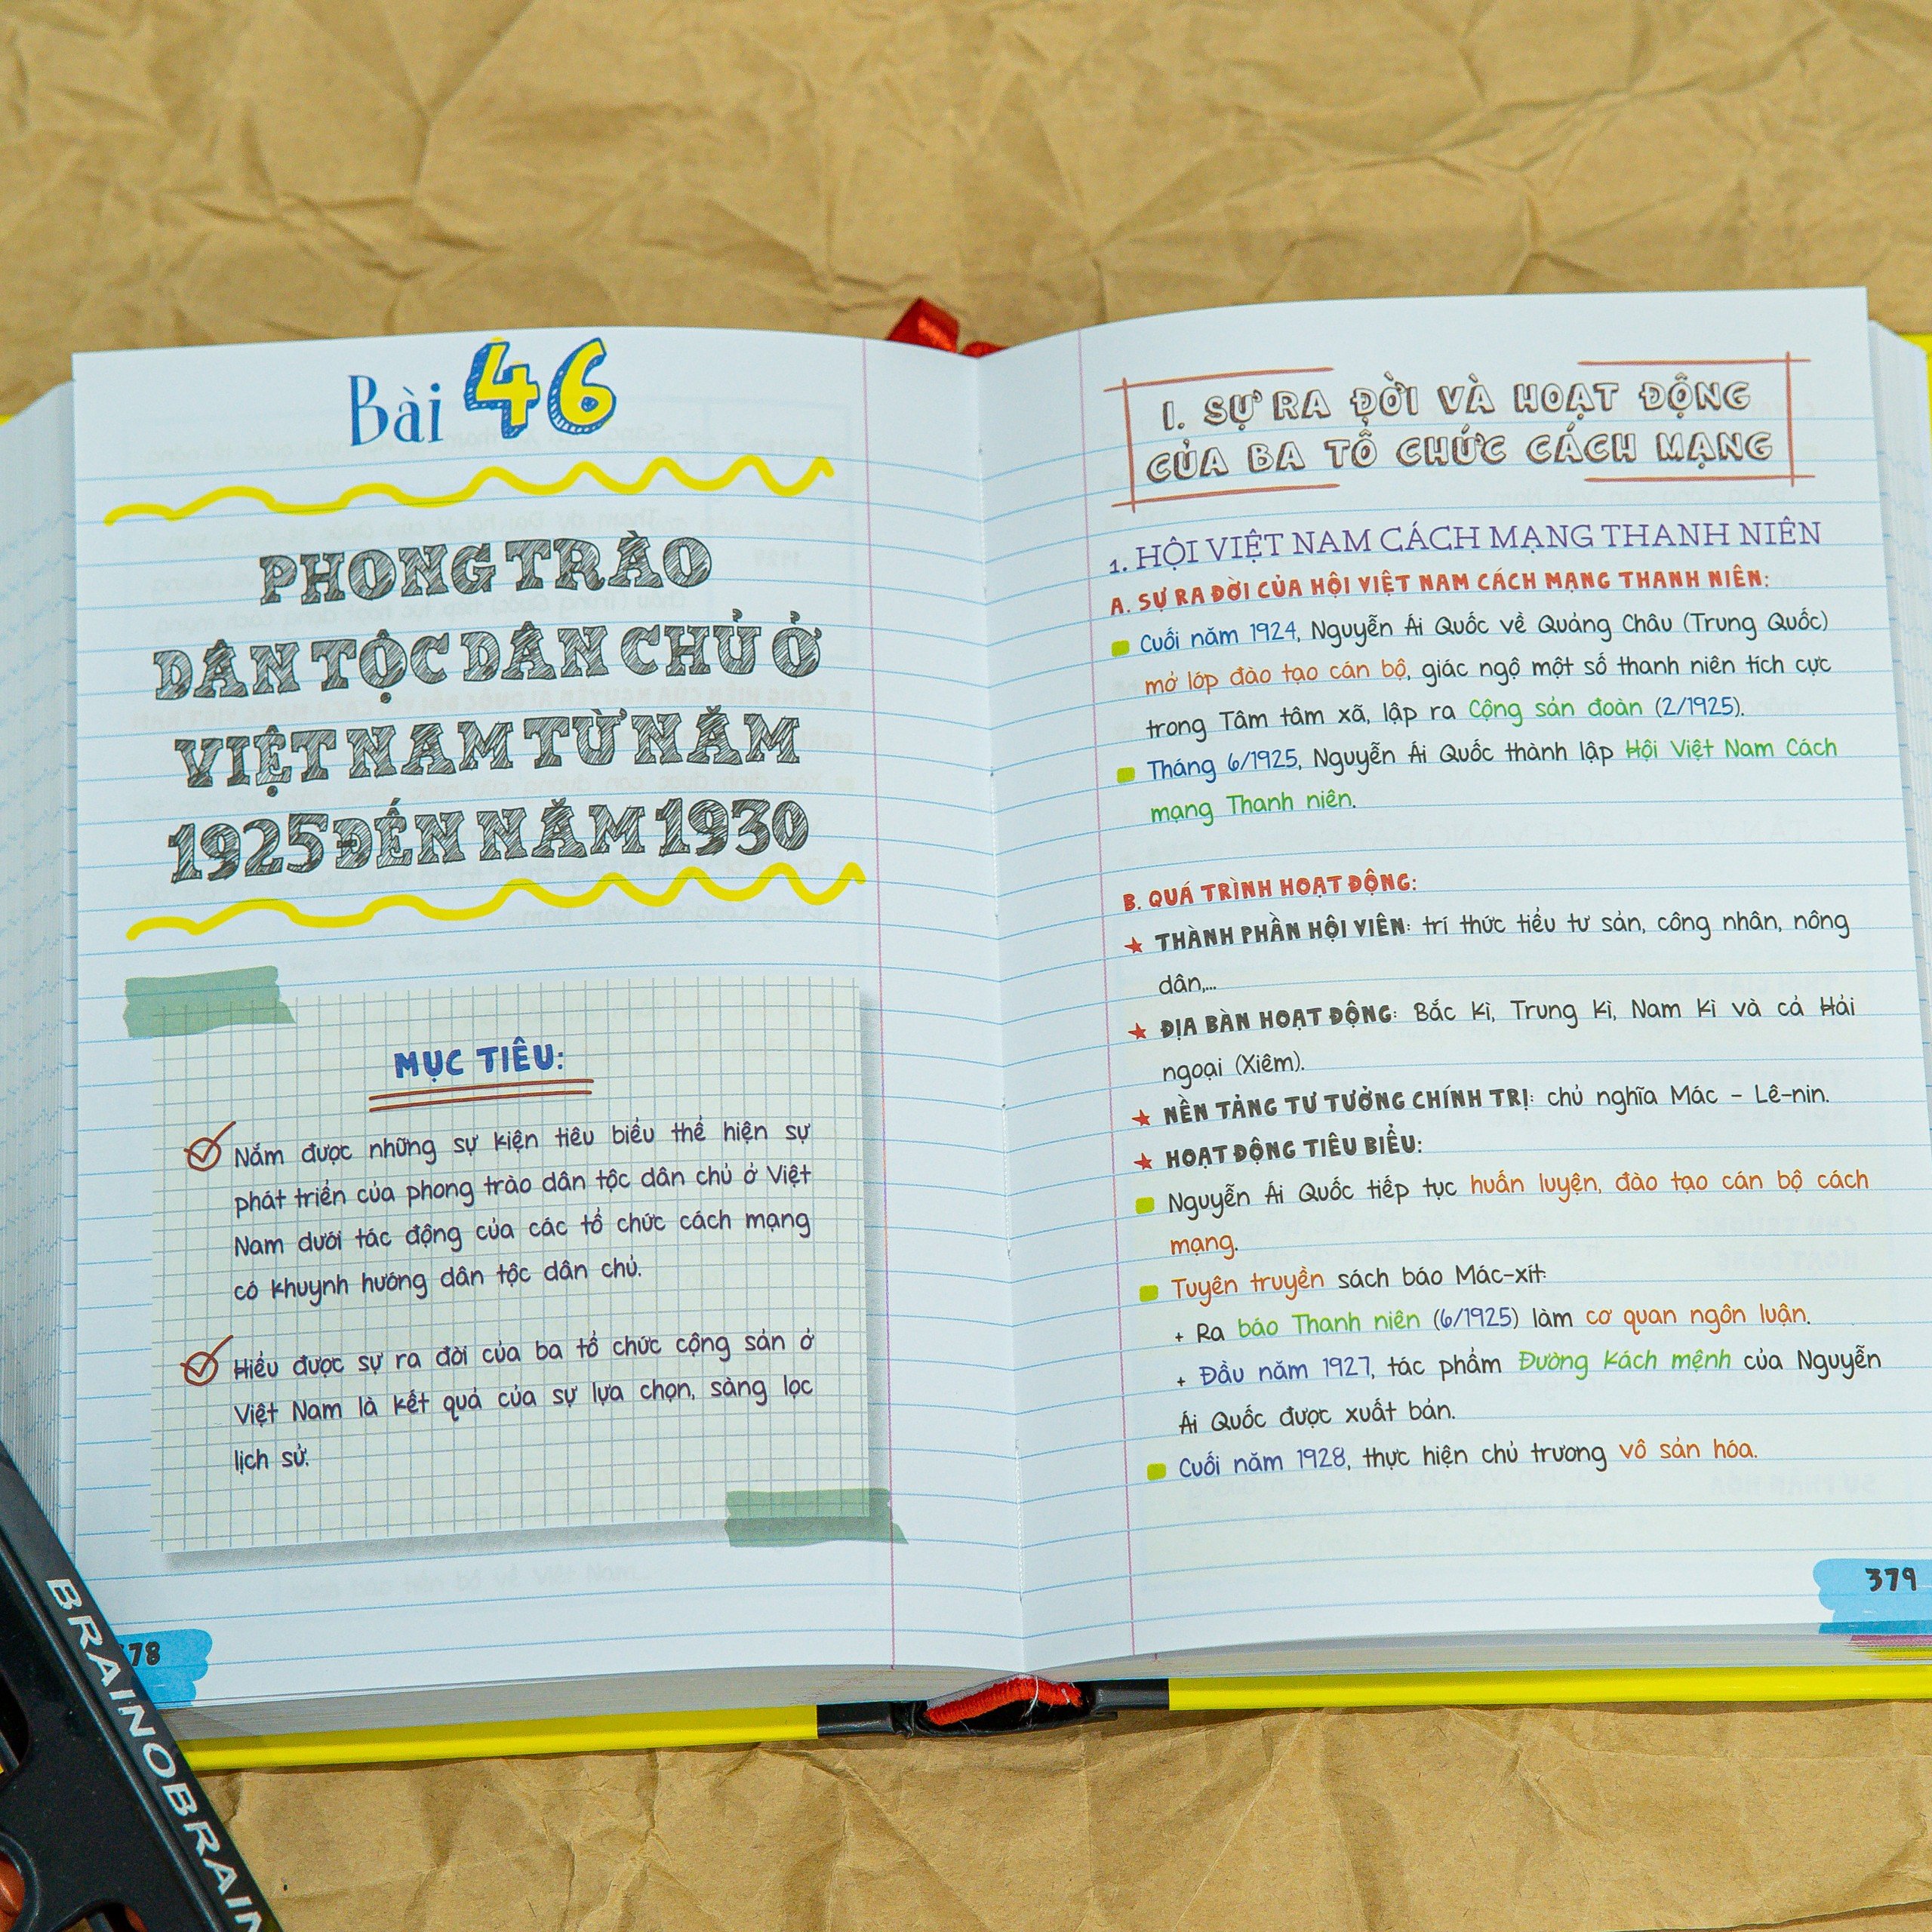 Bài 46
PHONG TRÀO
DÂN TỘC DÂN CHỦ Ở
VIỆT NAM TỪ NĂM
1925 ĐẾN NĂM 1930
MỤC TIÊU:
Nắm được những sự kiện tiêu biểu thể hiện sự
phát triển của phong trào dân tộc dân chủ ở Việt
Nam dưới tác động của các tổ chức cách mạng
có khuynh hướng dân tộc dân chủ.
Hiểu được sự ra đời của ba tổ chức cộng sản ở
Việt Nam là kết quả của sự lựa chọn, sàng lọc
lịch sử.
78
BRAINOBRAIN
I. SỰ RA ĐỜI VÀ HOẠT ĐỘNG
CỦA BA TỔ CHỨC CÁCH MẠNG
1. HỘI VIỆT NAM CÁCH MẠNG THANH NIÊN
A. SỰ RA ĐỜI CỦA HỘI VIỆT NAM CÁCH MẠNG THANH NIÊN:
Cuối năm 1924, Nguyễn Ái Quốc về Quảng Châu (Trung Quốc)
mở lớp đào tạo cán bộ, giác ngộ một số thanh niên tích cực
trong Tâm tâm xã, lập ra Cộng sản đoàn (2/1925).
Tháng 6/1925, Nguyễn Ái Quốc thành lập Hội Việt Nam Cách
mạng Thanh niên.
B. QUÁ TRÌNH HOẠT ĐỘNG:
★ THÀNH PHẦN HỘI VIÊN: trí thức tiểu tư sản, công nhân, nông
dân,...
★ ĐỊA BÀN HOẠT ĐỘNG: Bắc Kì, Trung Kì, Nam Kì và cả Hải
ngoại (Xiêm).
★ NỀN TẢNG TƯ TƯỞNG CHÍNH TRỊ: chủ nghĩa Mác – Lê-nin.
★ HOẠT ĐỘNG TIÊU BIỂU:
Nguyễn Ái Quốc tiếp tục huấn luyện, đào tạo cán bộ cách
mạng.
Tuyên truyền sách báo Mác-xít:
+ Ra báo Thanh niên (6/1925) làm cơ quan ngôn luận.
+ Đầu năm 1927, tác phẩm Đường Kách mệnh của Nguyễn
Ái Quốc được xuất bản.
Cuối năm 1928, thực hiện chủ trương vô sản hóa.
379